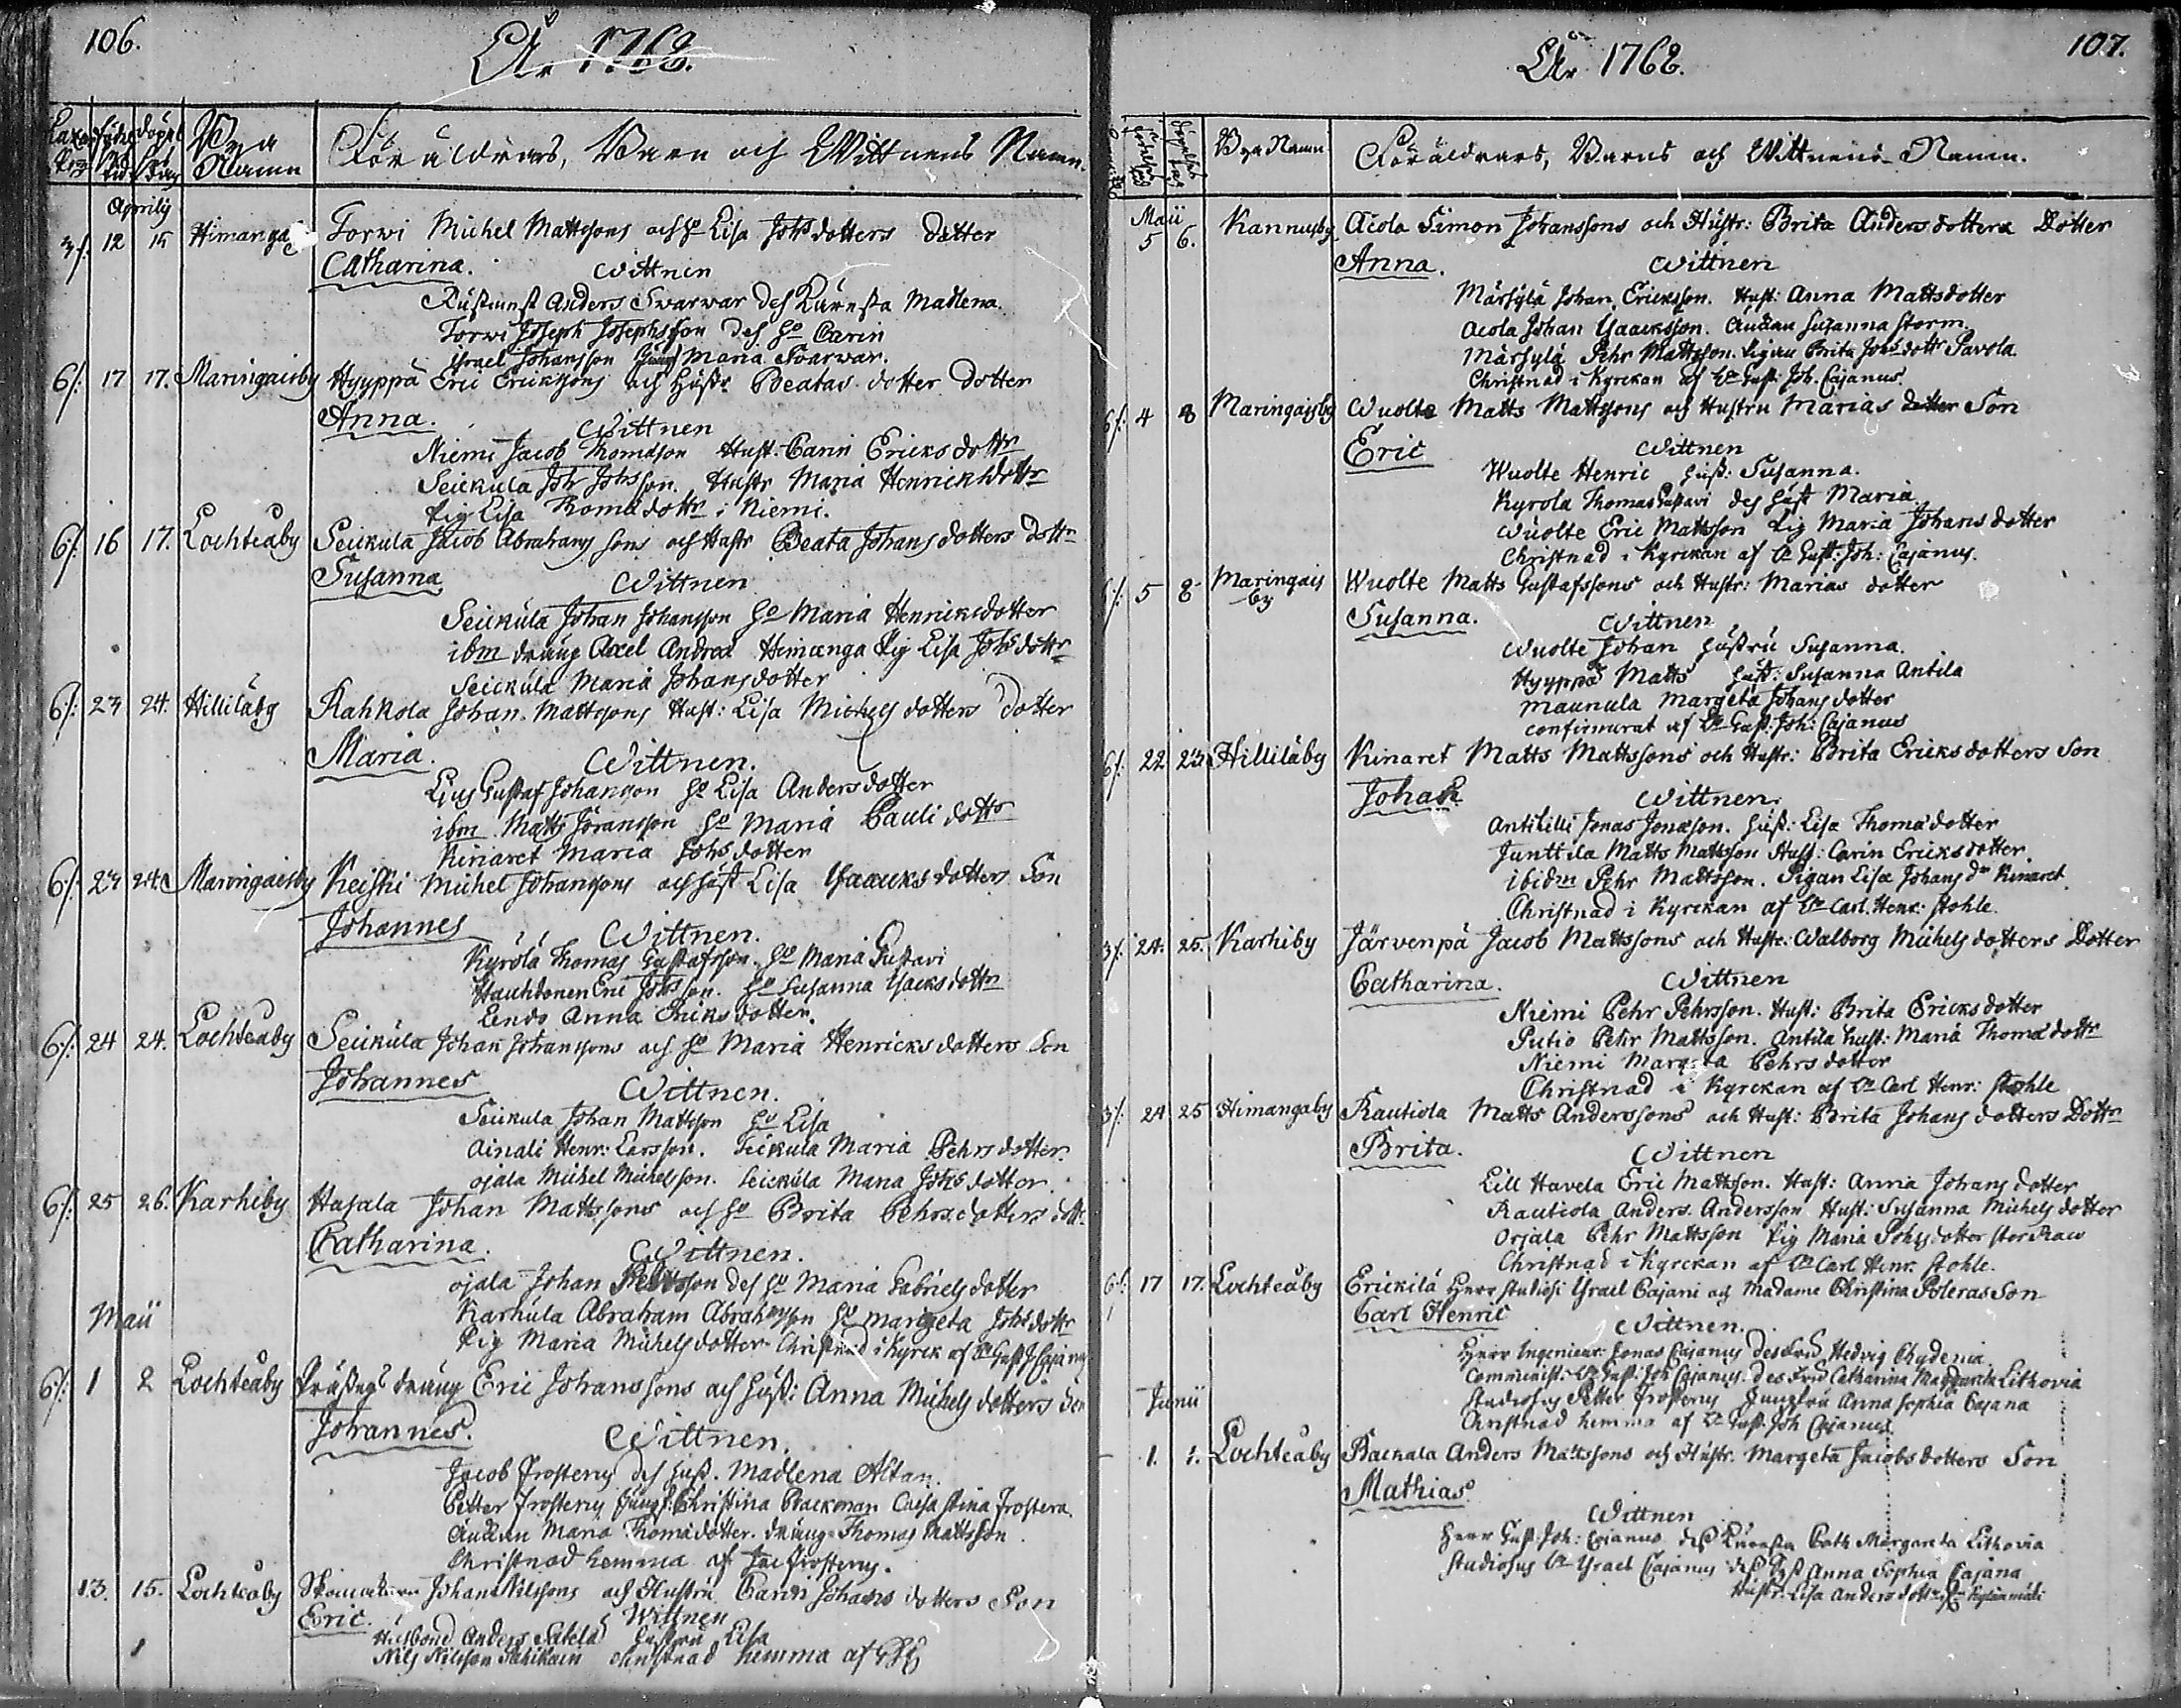 106.
År 1762.
Födel dag Döpel dag Bya Namn Föräldrars, Barn och Wittnens Namn.
Aprilis
3/: 12 15 Himanga Torwi Michel Mattssons och Ho Lisa Johsdotters dotter
Catharina. Wittnen
Anders Swarwar des Käresta Madlena.
Torwi Joseph Josephsson des Ho Carin
Israel Johansson Maria Swarwar.
6/: 17 17. Maringaisby Hyyppä Eric Erickssons och Hustr Beatas dotter dotter
Anna. Wittnen
Niemi Jacob Thomasson Hust. Carin Ericksdottr
Seickula Joh Johsson. Hustr Maria Henrichsdottr
Pig Lisa Thomædottr i Niemi.
6/: 16 17. Lochteåby Seickula Jacob Abrahams sons och Hustr Beata Johansdotters dottr
Susanna Wittnen
Seickula Johan Johansson Ho Maria Henriksdotter
ibm dräng Axel Andreæ Himanga Pig Lisa Johsdottr
Seickula Maria Johansdotter
6/: 23 24. Hilliläby Rahkola Johan Mattssons Hust: Lisa Michelsdotters dotter
Maria. Wittnen.
Gustaf Johansson Ho Lisa Andersdotter
ibm Matts Göransson Ho Maria Pauli dottr
Kinaret Maria Johsdotter
6/: 23 24. Maringaisby Keiski Michel Johanssons och Hust Lisa Isaacksdotters Son
Johannes Wittnen.
Kyrölä Thomas Gustafsson. Ho Maria Gustavi
Eric Johsson. Ho Susanna Isacksdottr
Anna Ericksdotter.
6/: 24 24. Lochteåby Seickula Johan Johanssons och Ho Maria Henricksdotters Son
Johannes Wittnen.
Seickula Johan Mattsson Ho Lisa
Ainali Henr: Larsson. Seickula Maria Pehrsdotter.
Ojala Michel Michelsson. Seickula Maria Johsdotter.
6/: 25 26. Karhiby Hasala Johan Mattssons och Ho Brita Pehrsdotters dottr
Catharina. Wittnen.
Ojala Johan des Ho Maria Gabrielsdotter
Karhula Abraham Abrahamsson Ho Margeta Johsdottr
Pig Maria Michelsdotter Christnad i Kyrck af Gust J Cajanus
Maii
6/: 1 2 Lochteåby dräng Eric Johanssons och Hust: Anna Michelsdotters Son
Johannes. Wittnen.
Jacob Frosterus des Hust. Madlena Altan.
Petter Frosterus Jungf: Christina Backman Caisa Stina Frostera.
Änckan Maria Thomædotter. dräng Thomas Mattsson.
Christnad hemma af Jac Frosterus.
13. 15. Lochteåby Johan Nilssons och Hustru Carin Johansdotters Son
Eric. Wittnen
Anders Hustru Lisa
Nils Nilsson Christnad hemma af
År 1762. 107.
Bya Namn Föräldrars, Barns och Wittnens Namn.
Maii
5 6. Kannusby Aiola Simon Johanssons och Hustr: Brita Andersdotters Dotter
Anna. Wittnen
Märsylä Johan Ericksson. Hust: Anna Mattsdotter
Aiola Johan Isaacksson. Änckan Susanna Storm.
Märsylä Pehr Mattsson. Pigan Brita Johsdottr Pavola
Christnad i Kyrckan af Gust: Joh. Cajanus.
6/: 4 8 Maringaisby Wuolte Matts Mattssons och Hustru Marias dotter Son
Eric Wittnen
Wuolte Henric Hust: Susanna.
Kyrola Thomas Gustavi des Hust Maria.
Wuolte Eric Mattsson Pig Maria Johansdotter
Christnad i Kyrckan af Gust: Joh: Cajanus.
6/: 5 8 Maringais by Wuolte Matts Gustafssons och Hustr: Marias dotter
Susanna. Wittnen
Wuolte Johan Hustru Susanna.
Hyyppä Matts Hust: Susanna Antila
Maunula Margeta Johansdotter
confirmerat af Gust: Joh: Cajanus
6/: 22 23 Hilliläby Kinaret Matts Mattssons och Hustr: Brita Ericksdotters Son
Johan Wittnen.
Antihilli Jonas Jonæson. Hust: Lisa Thomædotter
Junttila Matts Mattsson Hust: Carin Ericksdotter.
ibidm Pehr Mattsson. Pigan Lisa Johans dr Kinaret.
Christnad i Kyrckan af Carl. Henr: Stohle.
3/: 24. 25. Karhiby Järvenpä Jacob Mattssons och Hustr: Walborg Michelsdotters Dotter
Catharina. Wittnen
Niemi Pehr Pehrsson. Hust: Brita Ericksdotter
Putio Pehr Mattsson. Antila Hust: Maria Thomædottr
Niemi Margeta Pehrsdotter
Christnad i Kyrckan af Carl Henr: Stohle
3/: 24 25 Himangaby Rautiola Matts Anderssons och Hust: Brita Johansdotters Dottr
Brita. Wittnen
Lill Havela Eric Mattsson. Hust: Anna Johansdotter
Rautiola Anders Andersson Hust: Susanna Michelsdotter
Orjala Pehr Mattsson Pig Maria Johansdotter
Christnad i Kyrckan af Carl Henr. Stohle.
6/: 17 17. Lochteåby Erickilä Herr Studiosi Israel Cajani och Madame Christina Poleras Son
Carl Henric Wittnen.
Herr Ingenieur Jonas Cajanus des Fru Hedvig Chydenia
Comminist: Gust: Joh Cajanus. des Fru Catharina Margareta Lithovia
Studiosus Petter Frosterus Jungfru Anna Sophia Cajana
Christnad hemma af Gust. Joh Cajanus
Junii
1. 1. Lochteåby Backala Anders Mattssons och Hustr. Margeta Jacobsdotters Son
Mathias Wittnen
Herr Gust. Joh: Cajanus des Käresta Cath Margareta Lithovia
Studiosus Israel Cajanus des Syst Anna Sophia Cajana
Hustr: Lisa Andersdottr